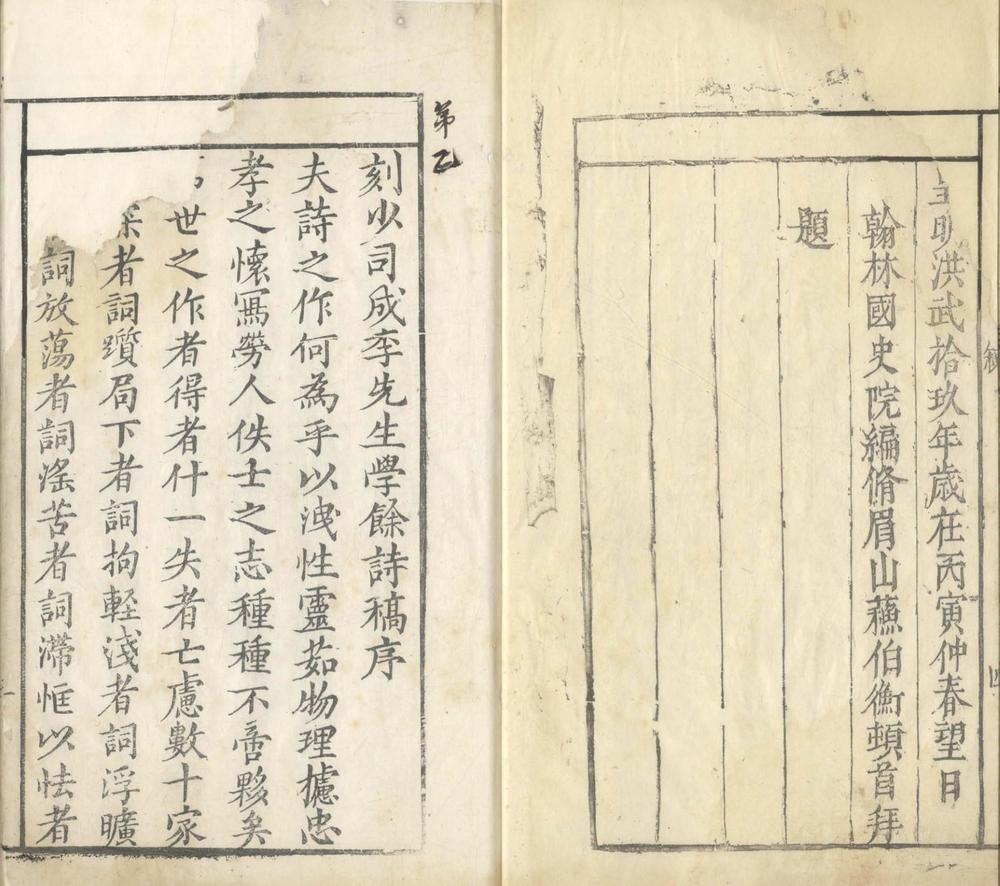 皇明洪武拾玖年歲在丙寅仲春望日
翰林國史院編脩眉山蘓伯衡頓首拜
題
第乙
刻少司成李先生學餘詩稿序
夫詩之作何為乎以洩性靈茹物理攄忠
孝之懷寫勞人佚士之志種種不啻夥矣
世之作者得者什一失者亡慮數十家
者詞躓局下者詞拘輕淺者詞浮曠
詞放蕩者詞滛苦者詞滯恇以怯者